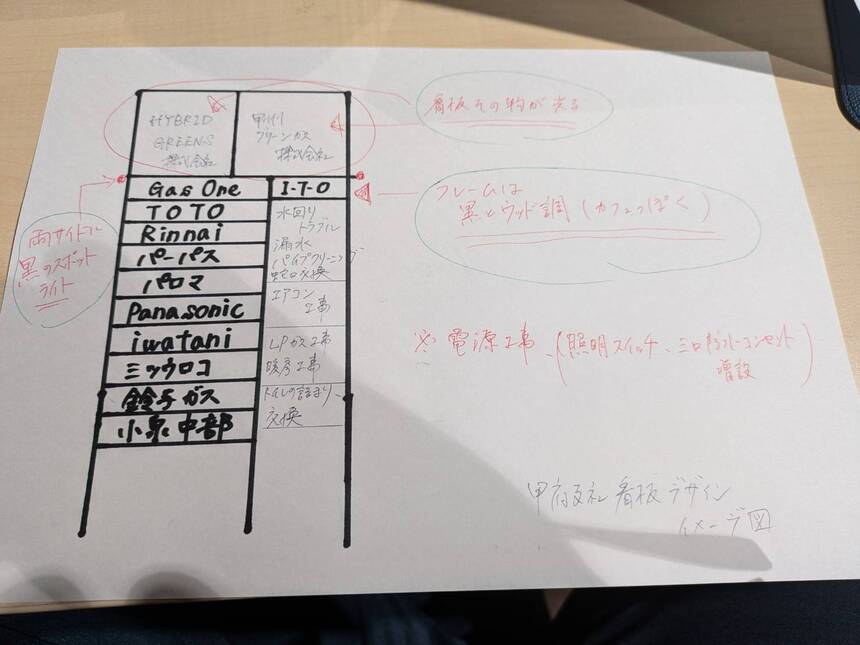 HYBRID
GREENS
株式会社
甲州
グリーンガス
株式会社
看板その物が光る
Gas One
I・T・O
TOTO
Rinnai
パーパス
パロマ
Panasonic
iwatani
ミツウロコ
鈴与ガス
小泉中部
水回り
トラブル
漏水
パイプクリーニング
蛇口交換
エアコン
工事
LPガス工事
暖房工事
トイレの詰まり、
交換
フレームは
黒とウッド調(カフェっぽく)
両サイドに
黒のスポット
ライト
※電源工事、(照明スイッチ、三口防水コンセント
増設)
甲府支社 看板デザイン
イメージ図